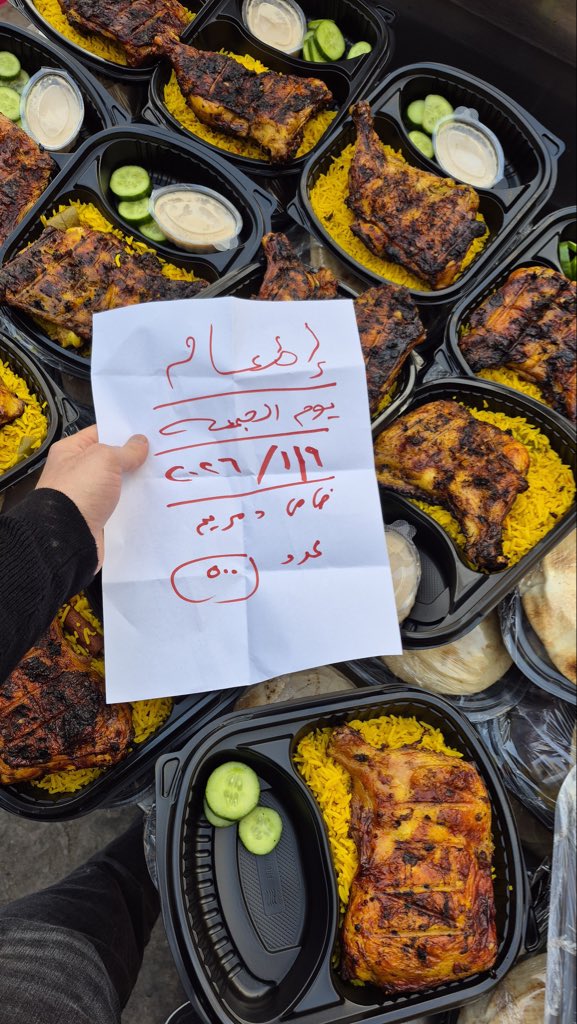 إطعام
يوم الجمعة
٢٠٢٦/١/٩
خاص د مريم
عدد ٥٠٠